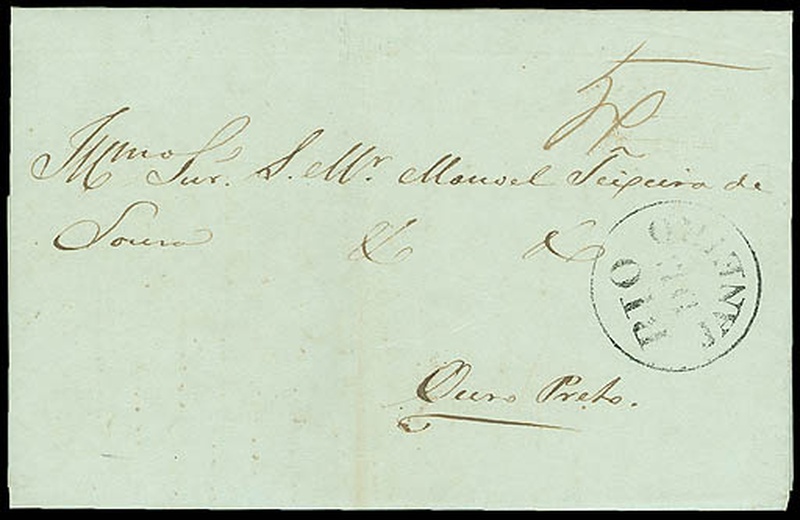 Illmo Snr. S. Mr. Manoel Teixeira de
Souza & &
RIO DE JANEIRO
Ouro Preto.